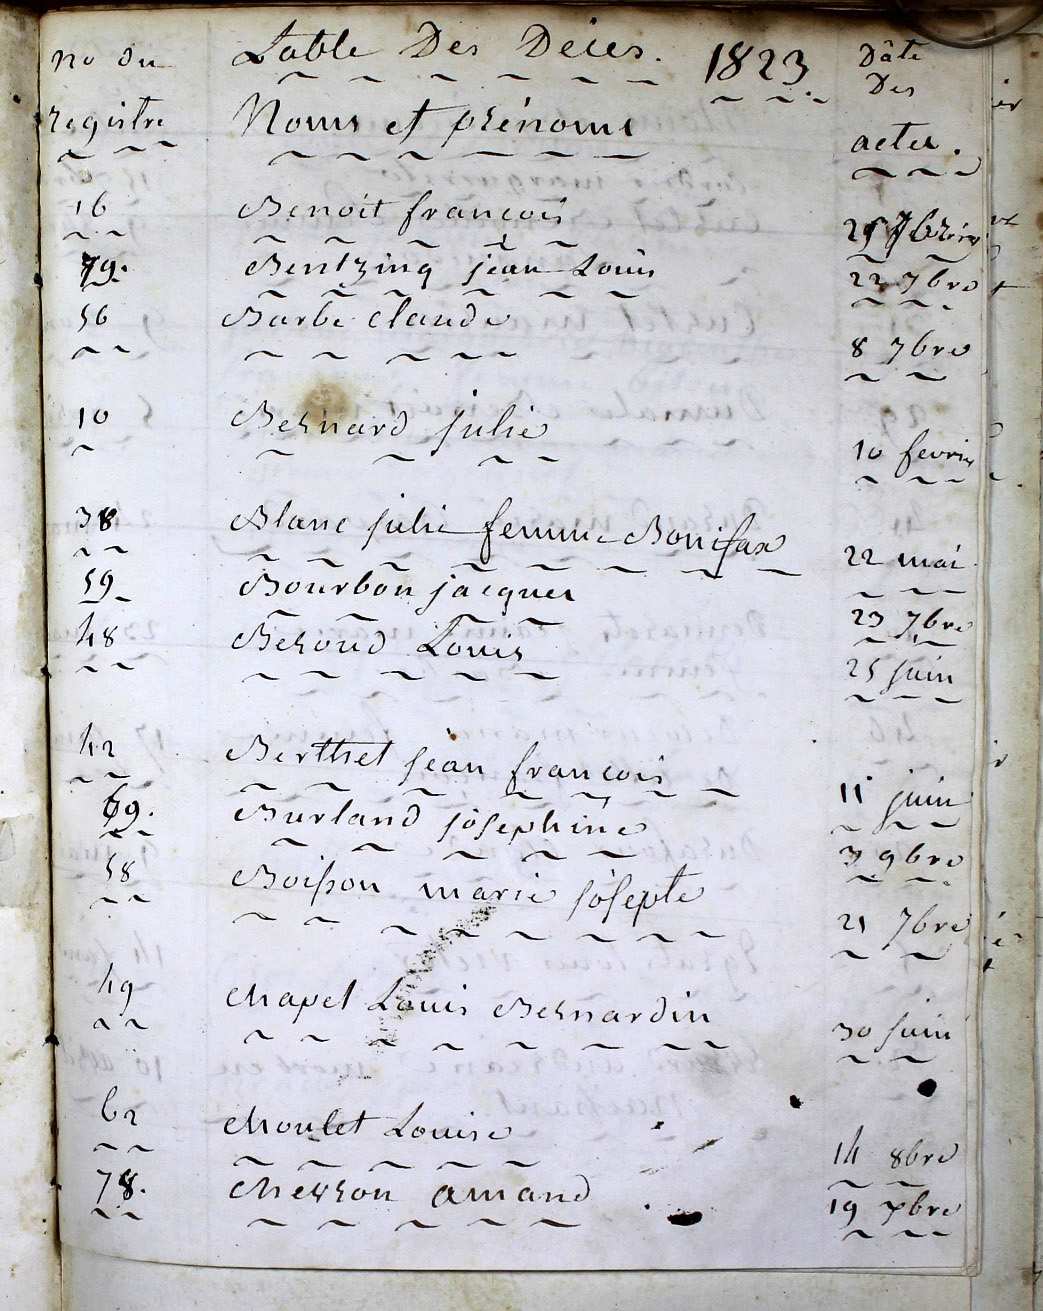 No du Table Des Déces. 1823 Dâte
Des
registre Noms et prénoms actes.
16 Benoit françois 25
79. Bentzing jean Louis 22 Xbre
56 Barbe Claude 8 7bre
10 Bernard julie 10 fevrier
38 Blanc julie femme Bonifax 22 mai
59 Bourbon jacques 23 7bre
48 Beroud Louis 25 juin
42 Berthet jean françois 11 juin
69. Burland josephine 3 9bre
58 Boisson marie josepte 21 7bre
49 Chapel Louis Bernardin 30 juin
62 Choulet Louise 14 8bre
78. Cherron amand 19 Xbre